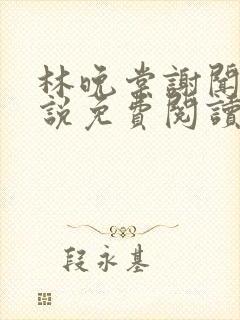 林晚棠謝聞
說免費閱讀
段永基